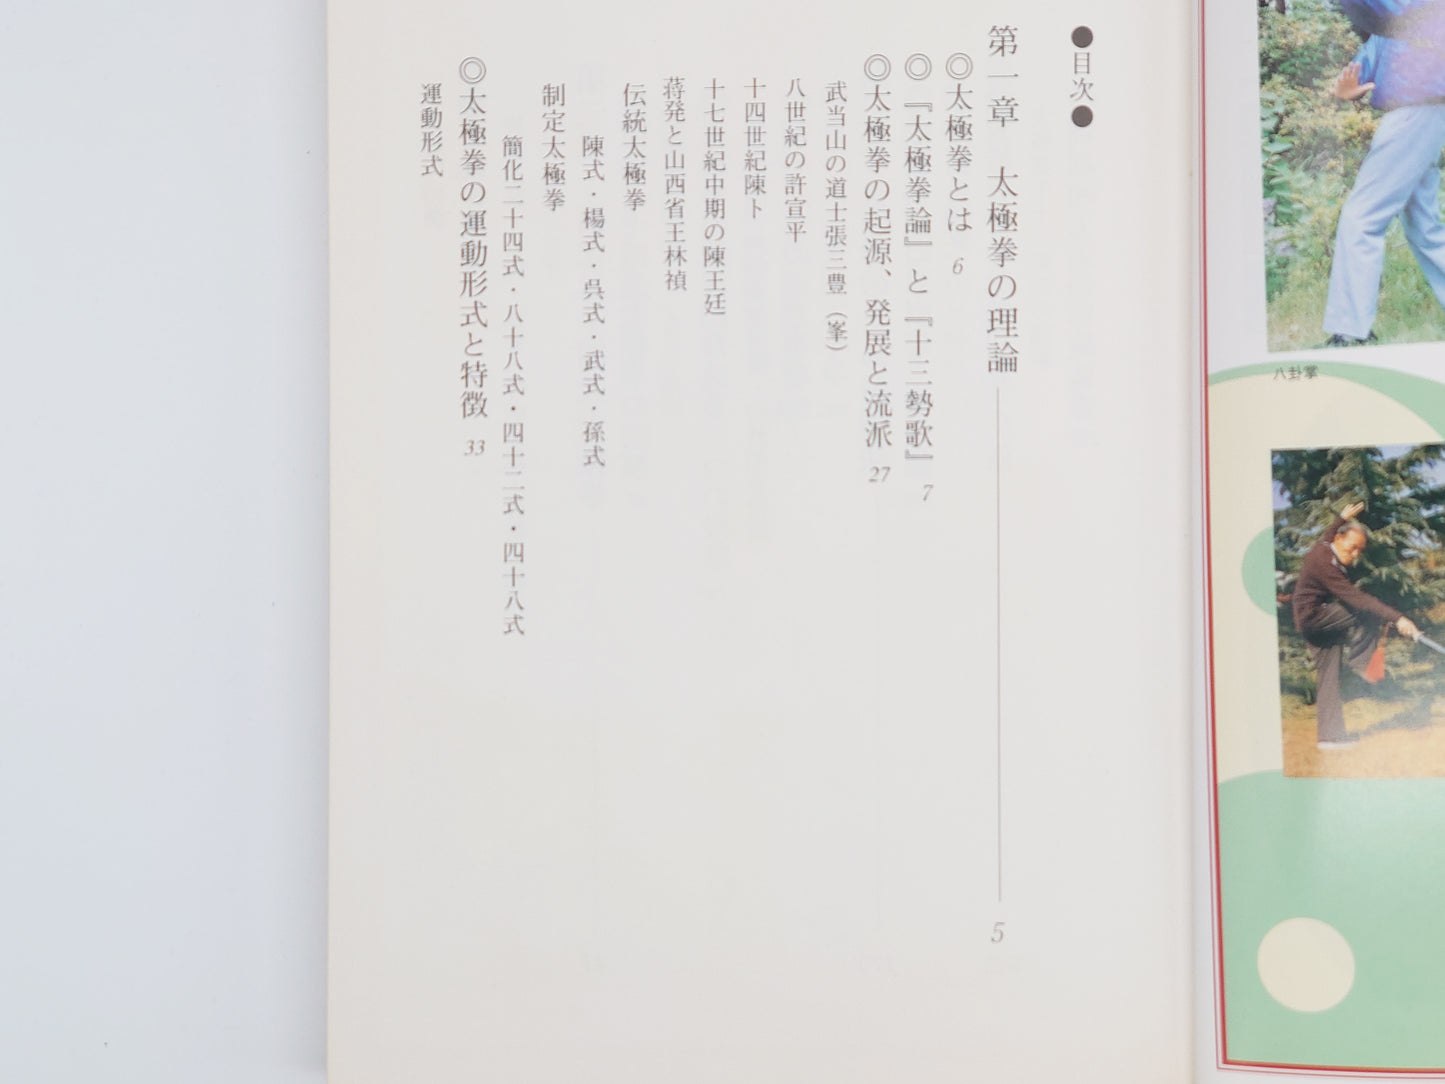 ●目次●
第一章　太極拳の理論 5
◎太極拳とは 6
◎『太極拳論』と『十三勢歌』 7
◎太極拳の起源、発展と流派 27
武当山の道士張三豊（峯）
八世紀の許宣平
十四世紀陳卜
十七世紀中期の陳王廷
蒋発と山西省王林禎
伝統太極拳
陳式・楊式・呉式・武式・孫式
制定太極拳
簡化二十四式・八十八式・四十二式・四十八式
◎太極拳の運動形式と特徴 33
運動形式
八卦掌